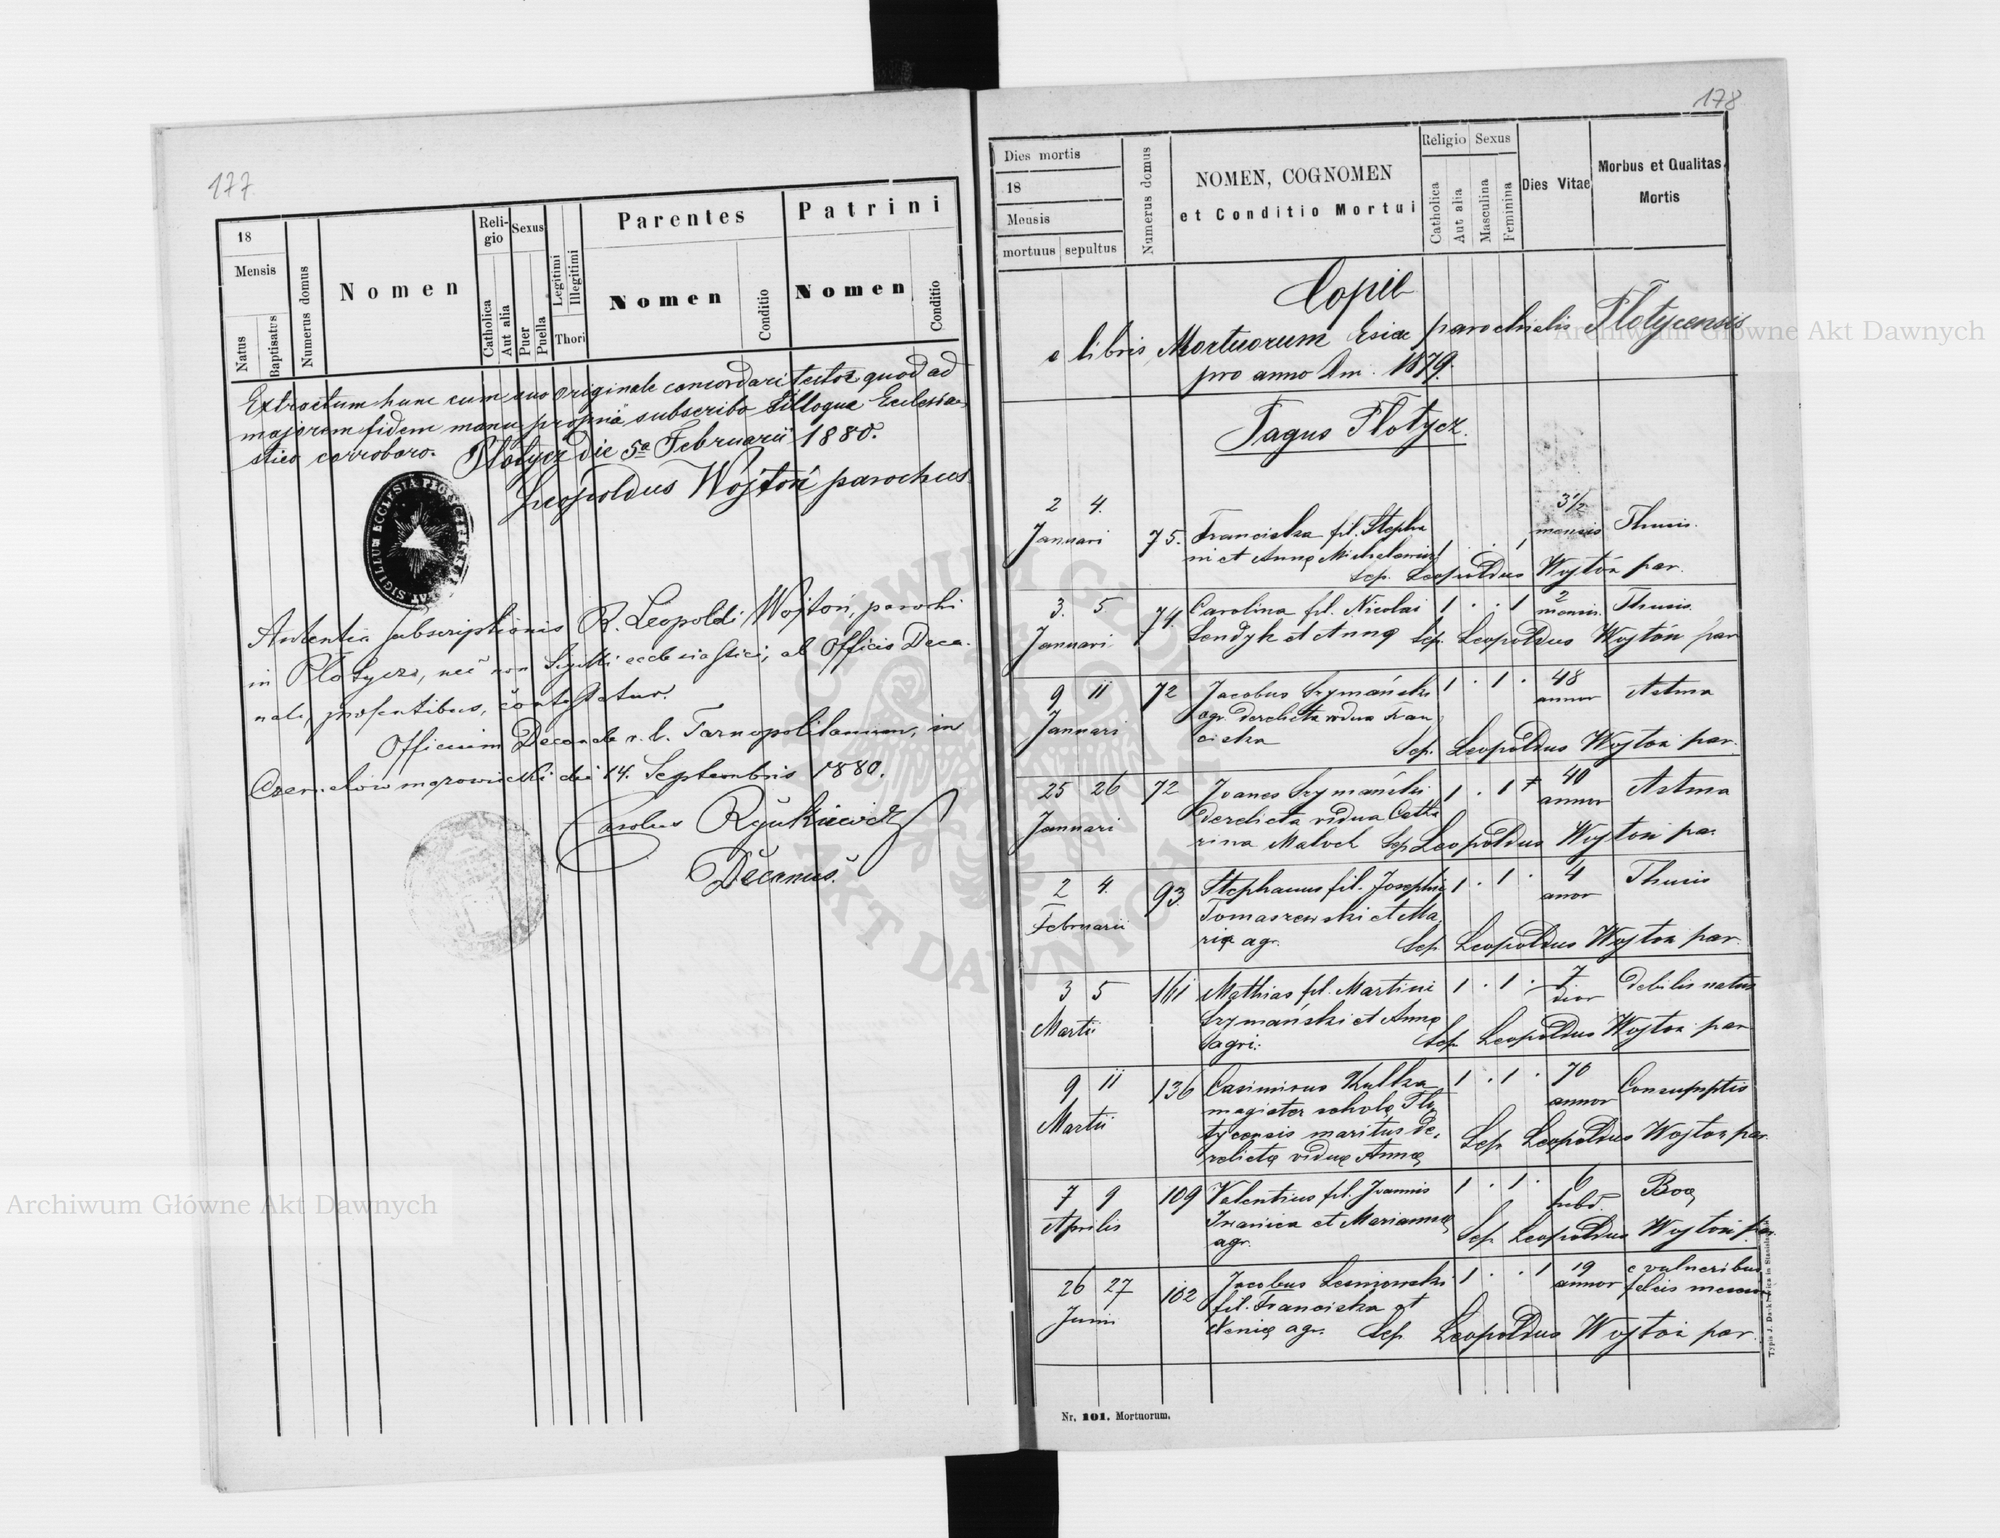 177.
18
Mensis
Natus
Baptisatus
Numerus domus
Nomen
Religio
Catholica
Aut alia
Sexus
Puer
Puella
Legitimi
Illegitimi
Thori
Parentes
Nomen
Conditio
Patrini
Nomen
Conditio
Extractum hunc cum suo originale concordari testor quod ad
majorem fidem manu propria subscribo Silloque Ecclesia
stico corroboro. Płotycz die 5a Februarii 1880.
Leopoldus Wojtoń parochus
SIGILLUM ECCLESIA
Autentia subscriptionis R. Leopoldi Wojtoń, parochi
in Płotycza, nec non Sigilli ecclesiastici, ab Officio Deca-
nali, praesentibus, contestatur.
Officium Decanale r. l. Tarnopolitanum, in
Czernelów mazowiecki die 14. Septembris 1880.
Carolus
Decanus.
178
Dies mortis
18
Mensis
mortuus sepultus
Numerus domus
NOMEN, COGNOMEN
et Conditio Mortui
Religio
Catholica
Aut alia
Sexus
Masculina
Feminina
Dies Vitae
Morbus et Qualitas
Mortis
Copie
e libris Mortuorum Esiae parochialis Płotycensis
pro anno Dni. 1879.
Pagus Płotycz.
2 4. 3 1/2
Januari 75. Franciska fil. Stepha mensis Thusis.
ni et Annę
Sep. Leopoldus Wojtoń par.
3. 5 74. Carolina fil. Nicolai 1 . . 1 2 mensis. Thusis.
Januari et Annę Sep. Leopoldus Wojtoń par
9 11 72 Jacobus Szymański 1 . 1 . 48 annor Astma
Januari agr. derelicta vidua Fran
ciska Sep. Leopoldus Wojtoń par.
25 26 72 Joanes Szymański 1 . 1 40 annor Astma
Januari derelicta vidua Catha
rina Sep Leopoldus Wojtoń par.
2 4. 93. Stephanus fil. Josephi 1 . 1 . 4 anor Thusis
Februarii Tomaszewski et Ma
rię agr. Sep Leopoldus Wojtoń par.
3 5 161 Mathias fil. Martini 1 . 1 . 7 dior debilis natus
Martii Szymański et Annę
agri: Sep Leopoldus Wojtoń par
9 11 136 Casimirus Kulka 1 . 1 . 70 annor Consumptio
Martii magister scholę Pło
tycensis maritus de- Sep Leopoldus Wojtoń par.
relictę viduę Annę
7 9 109 Valentius fil. Joannis 1 . 1 . 6
Aprilis et Mariannę
agr. Sep Leopoldus Wojtoń par.
26 27 102 Jacobus 1 . . 1 19 annor e vulneribus
Junii fil. Franciska et
agr. Sep Leopoldus Wojtoń par.
Nr. 101. Mortuorum.
Archiwum Główne Akt Dawnych
Archiwum Główne Akt Dawnych
ARCHIWUM GŁÓWNE AKT DAWNYCH